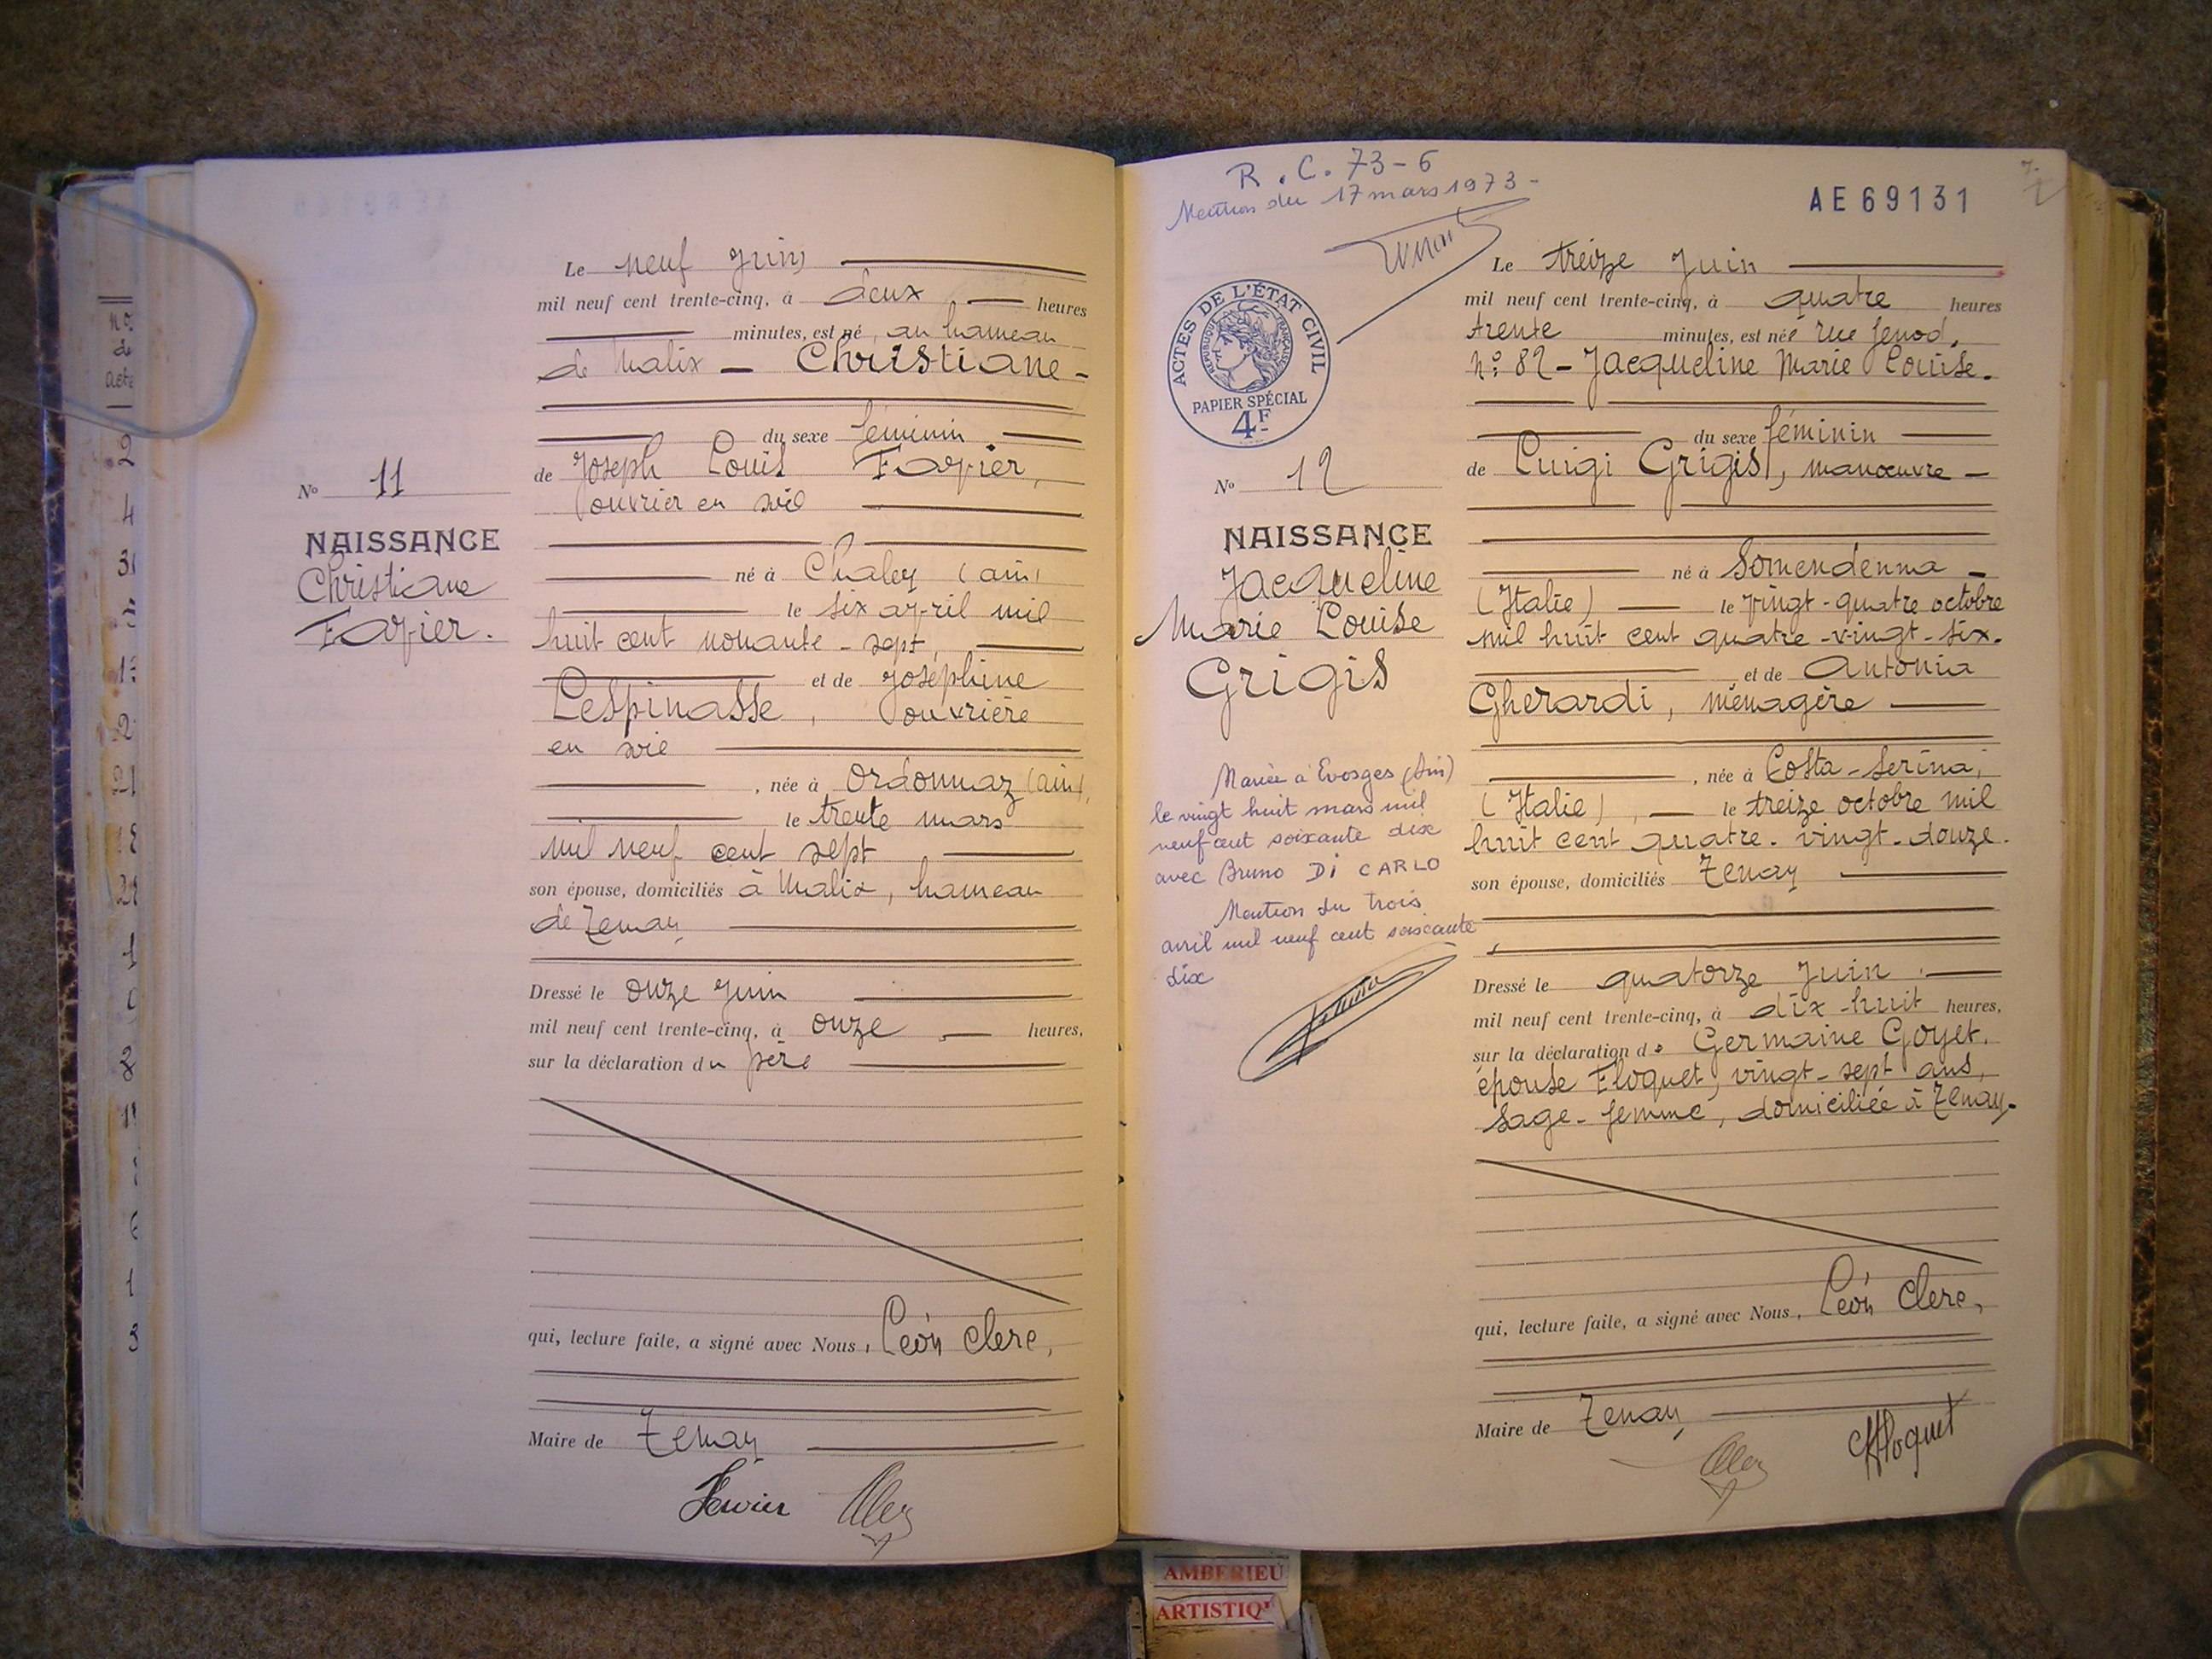 Le neuf Juin
mil neuf cent trente-cinq, à deux heures
minutes, est né, au hameau
de Malix - Christiane -
du sexe féminin
de Joseph Louis Favier,
ouvrier en soie
né à Chaley (ain)
le six avril mil
huit cent nonante-sept,
et de Joséphine
Lespinasse, ouvrière
en soie
, née à Ordonnaz (ain),
le trente mars
mil neuf cent sept
son épouse, domiciliés à Malix, hameau
de Tenay
Dressé le onze Juin
mil neuf cent trente-cinq, à onze heures,
sur la déclaration du père
qui, lecture faite, a signé avec Nous, Léon Clerc,
Maire de Tenay
Favier
No 11
NAISSANCE
Christiane
Favier.
No
de
acte
R.C. 73-6
Mention du 17 mars 1973-
AE69131
ACTES DE L'ÉTAT CIVIL
RÉPUBLIQUE FRANÇAISE
PAPIER SPÉCIAL
4F
No 12
NAISSANCE
Jacqueline
Marie Louise
Grigis
Mariée à Evosges (Ain)
le vingt huit mars mil
neuf cent soixante dix
avec Bruno Di CARLO
Mention du trois
avril mil neuf cent soixante
dix
Le treize Juin
mil neuf cent trente-cinq, à quatre heures
trente minutes, est née rue Jenod,
n: 82 - Jacqueline Marie Louise.
du sexe féminin
de Luigi Grigis, manœuvre -
né à Somendenna -
(Italie) le vingt-quatre octobre
mil huit cent quatre-vingt-six.
et de Antonia
Gherardi, ménagère
, née à Costa-Serina,
(Italie), le treize octobre mil
huit cent quatre-vingt-douze.
son épouse, domiciliés Tenay
Dressé le quatorze Juin
mil neuf cent trente-cinq, à dix-huit heures,
sur la déclaration de Germaine Goyet,
épouse Floquet, vingt-sept ans,
sage-femme, domiciliée à Tenay.
qui, lecture faite, a signé avec Nous, Léon Clerc,
Maire de Tenay
Floquet
AMBERIEU
ARTISTIQ